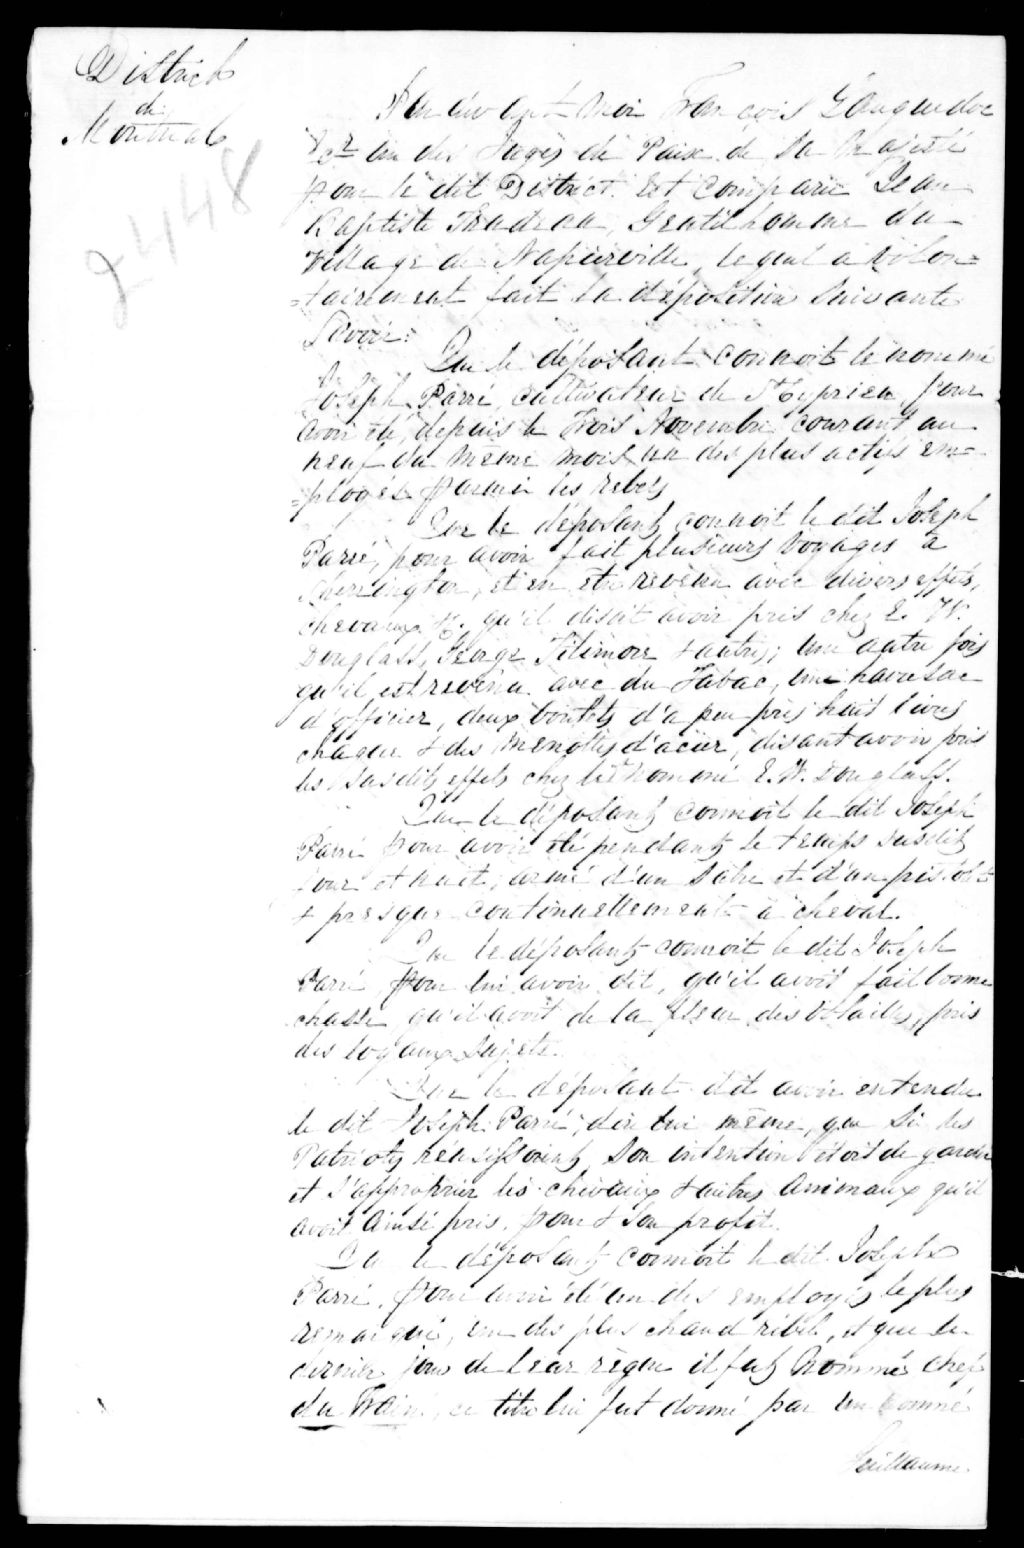 District
de
Montréal
2448
Par devant moi François Languedoc
Ecr un des Juges de Paix de Sa Majesté
pour le dit District. Est comparu Jean
Baptiste Trudeau, Gentilhomme du
Village de Napierville, lequel a volon=
=tairement fait la déposition suivante
Savoir:
Que le déposant connoit le nommé
Joseph Parré, cultivateur de St Cyprien, pour
avoir été, depuis le Trois Novembre courant au
neuf du même mois, un des plus actifs em=
=ployés parmi les rebels
Que le déposant connoit le dit Joseph
Parré, pour avoir fait plusieurs voyages à
Sherrington, et en être revenu avec divers effets,
chevaux &c. qu'il disoit avoir pris chez E. W.
Douglass, George Filimore & autres; une autre fois
qu'il est revenu avec du Tabac, une havresac
d'officier, deux boulets d'a peu près huit livres
chaque & des menottes d'acier, disant avoir pris
les susdits effets chez le nommé E. W. Douglass.
Que le déposant connoit le dit Joseph
Parré pour avoir été pendant le temps susdit
jour et nuit, armé d'un sabre et d'un pistolet
& presque continuellement à cheval.
Que le déposant connoit le dit Joseph
Parré, pour lui avoir dit, qu'il avoit fait bonne
chasse, qu'il avoit de la fleur, des volailles, pris
des loyaux sujets.
Que le déposant dit avoir entendu
le dit Joseph Parré, dire lui même, que si les
Patriotes réussissoient, son intention étoit de garder
et s'approprier les chevaux & autres animaux qu'il
avoit ainsi pris, pour son profit.
Que le déposant connoit le dit Joseph
Parré, pour avoir été un des employés le plus
remarqué, un des plus chaud rebel, et que le
dernier jour de leur règne il fut nommé chef
du Train, ce titre lui fut donné par un nommé
Guillaume